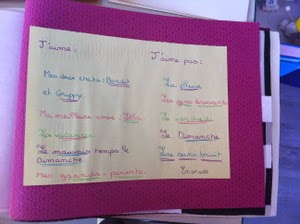 J'aime:
Mes deux chats: Dandy
et Grippy.
Ma meilleure amie
Les vacances.
Le mauvais temps le
Dimanche
Mes grands-parents.
J'aime pas:
La pluie
Les gens
Le
Le Dimanche
sans bruit